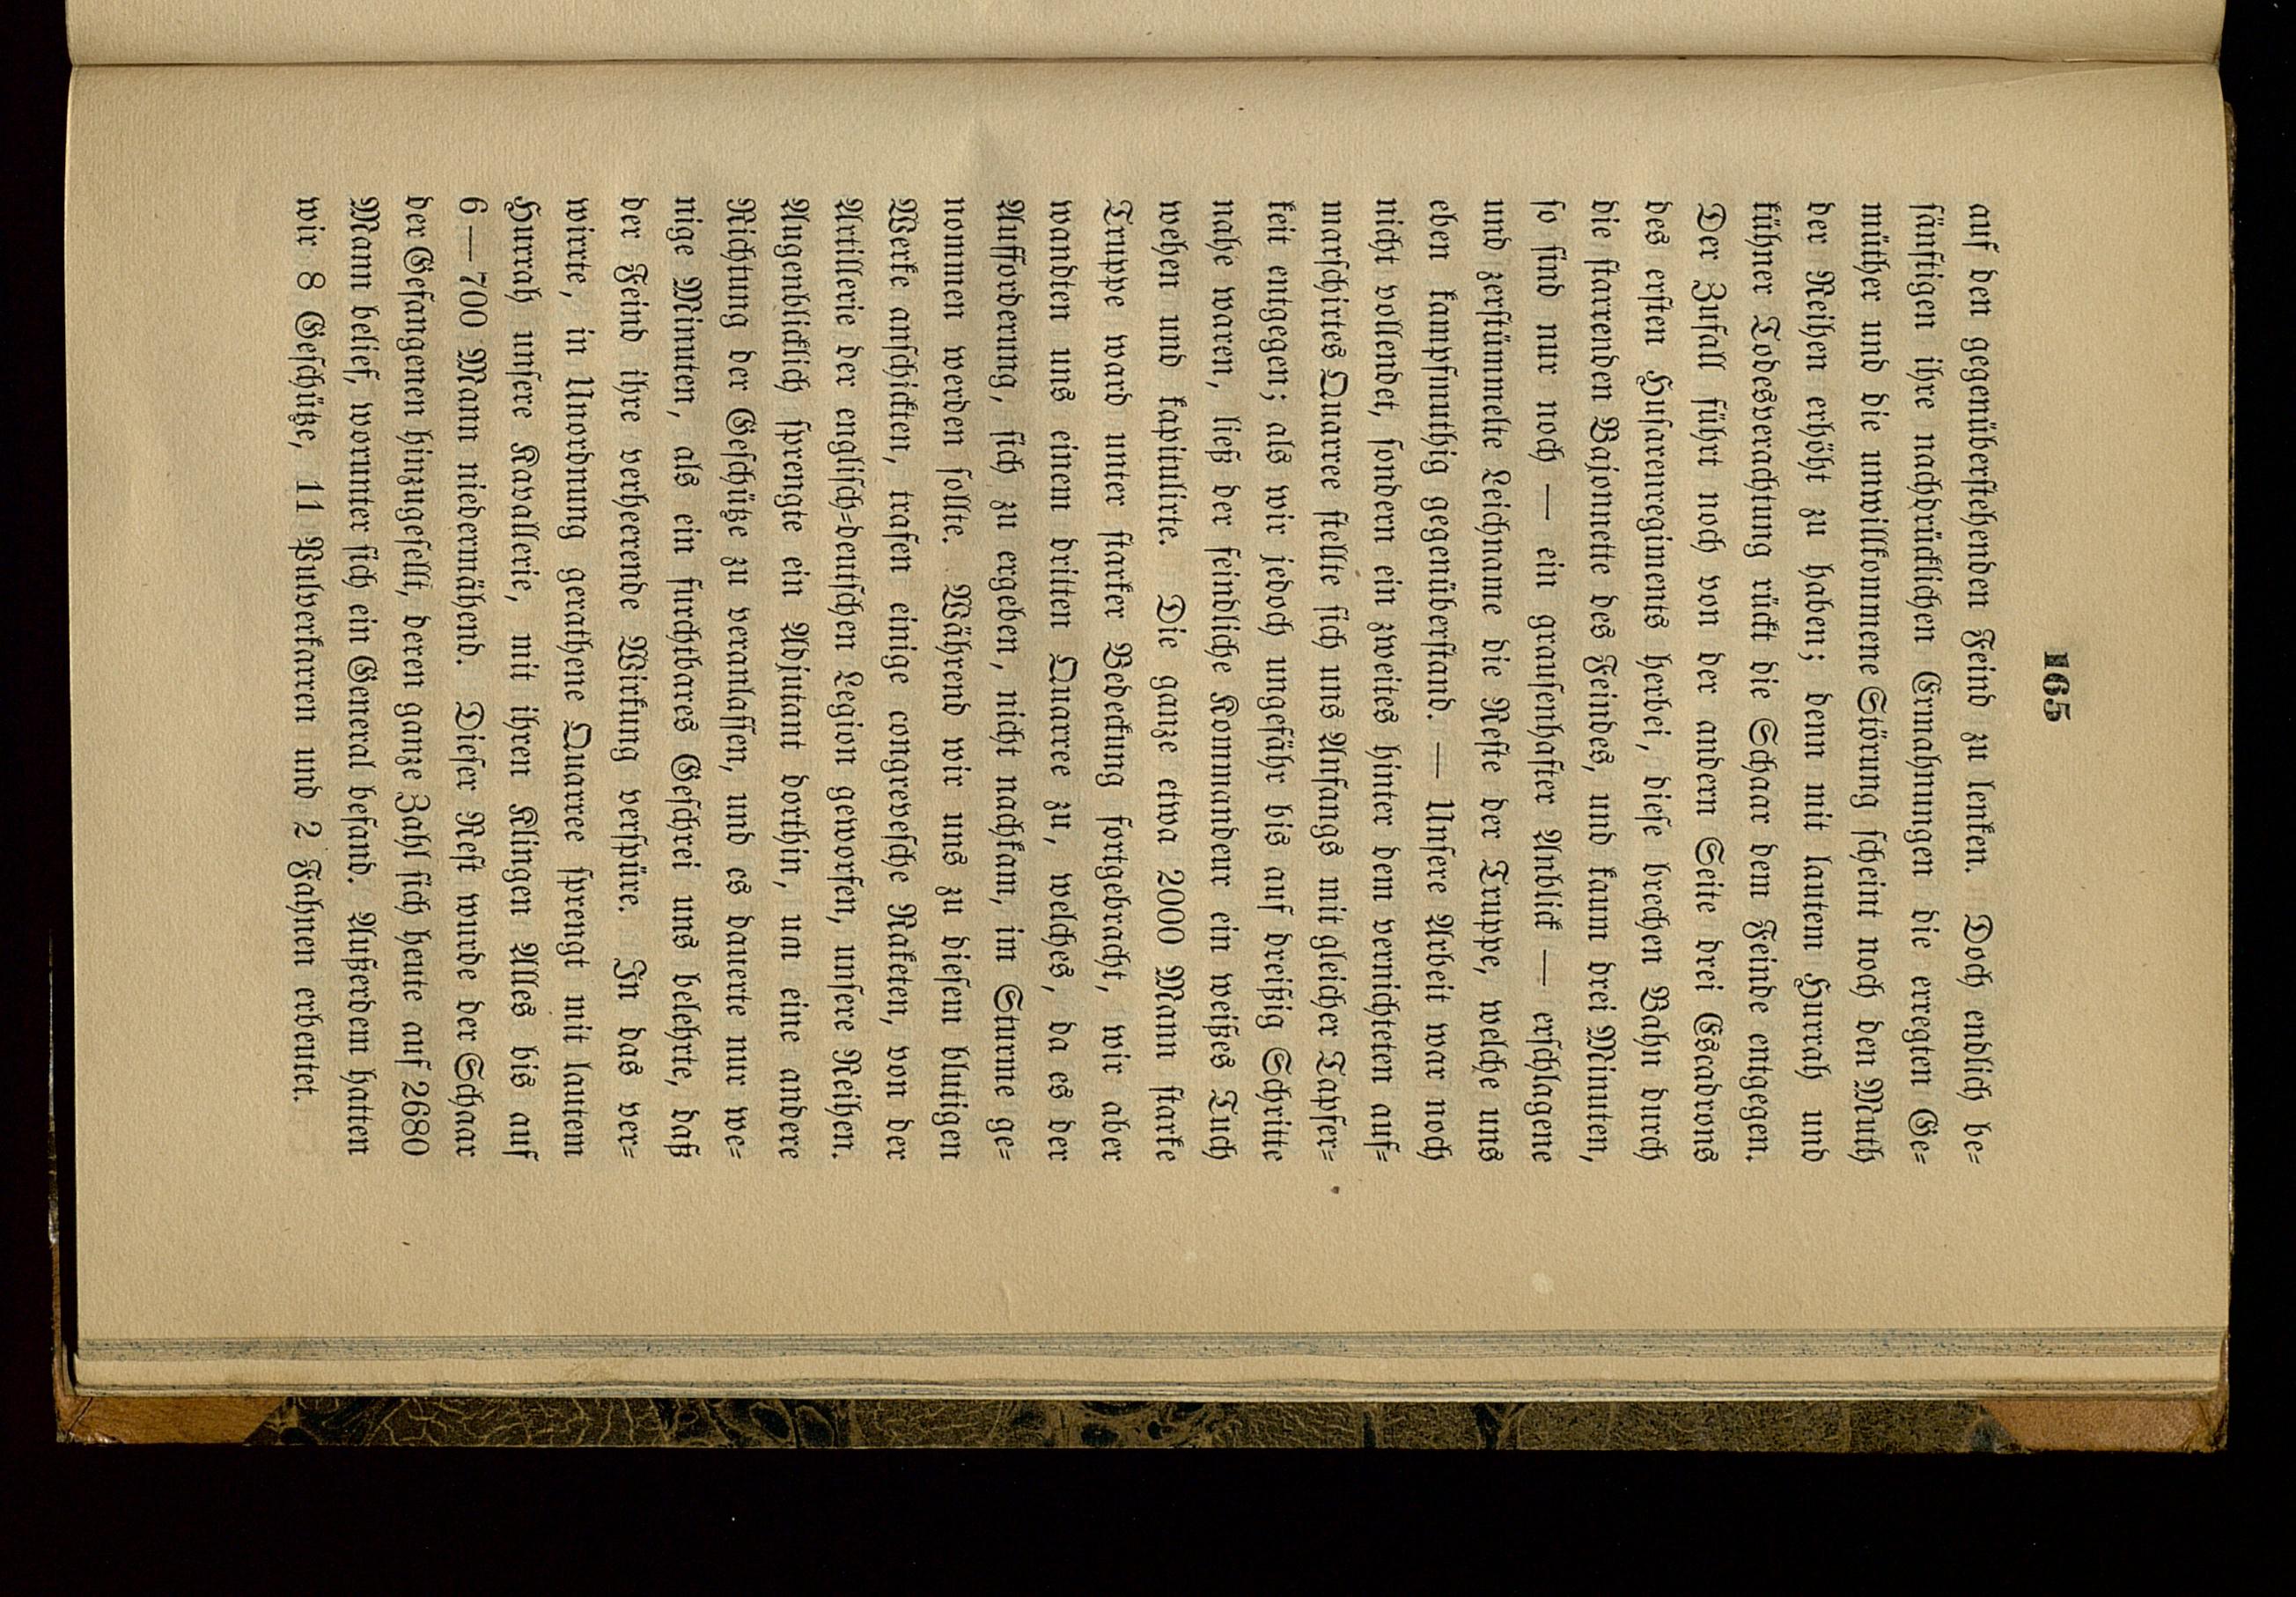 165
auf den gegenüberstehenden Feind zu lenken. Doch endlich be-
sänftigen ihre nachdrücklichen Ermahnungen die erregten Ge-
müther und die unwillkommene Störung scheint noch den Muth
der Reihen erhöht zu haben; denn mit lautem Hurrah und
kühner Todesverachtung rückt die Schaar dem Feinde entgegen.
Der Zufall führt noch von der andern Seite drei Escadrons
des ersten Husarenregiments herbei, diese brechen Bahn durch
die starrenden Bajonnette des Feindes, und kaum drei Minuten,
so sind nur noch — ein grausenhafter Anblick — erschlagene
und zerstümmelte Leichname die Reste der Truppe, welche uns
eben kampfmuthig gegenüberstand. — Unsere Arbeit war noch
nicht vollendet, sondern ein zweites hinter dem vernichteten auf-
marschirtes Quarree stellte sich uns Anfangs mit gleicher Tapfer-
keit entgegen; als wir jedoch ungefähr bis auf dreißig Schritte
nahe waren, ließ der feindliche Kommandeur ein weißes Tuch
wehen und kapitulirte. Die ganze etwa 2000 Mann starke
Truppe ward unter starker Bedeckung fortgebracht, wir aber
wandten uns einem dritten Quarree zu, welches, da es der
Aufforderung, sich zu ergeben, nicht nachkam, im Sturme ge-
nommen werden sollte. Während wir uns zu diesem blutigen
Werke anschickten, trafen einige congrevesche Raketen, von der
Artillerie der englisch-deutschen Legion geworfen, unsere Reihen.
Augenblicklich sprengte ein Adjutant dorthin, un eine andere
Richtung der Geschütze zu veranlassen, und es dauerte nur we-
nige Minuten, als ein furchtbares Geschrei uns belehrte, daß
der Feind ihre verheerende Wirkung verspüre. In das ver-
wirrte, in Unordnung gerathene Quarree sprengt mit lautem
Hurrah unsere Kavallerie, mit ihren Klingen Alles bis auf
6—700 Mann niedermähend. Dieser Rest wurde der Schaar
der Gefangenen hinzugesellt, deren ganze Zahl sich heute auf 2680
Mann belief, worunter sich ein General befand. Außerdem hatten
wir 8 Geschütze, 11 Pulverkarren und 2 Fahnen erbeutet.